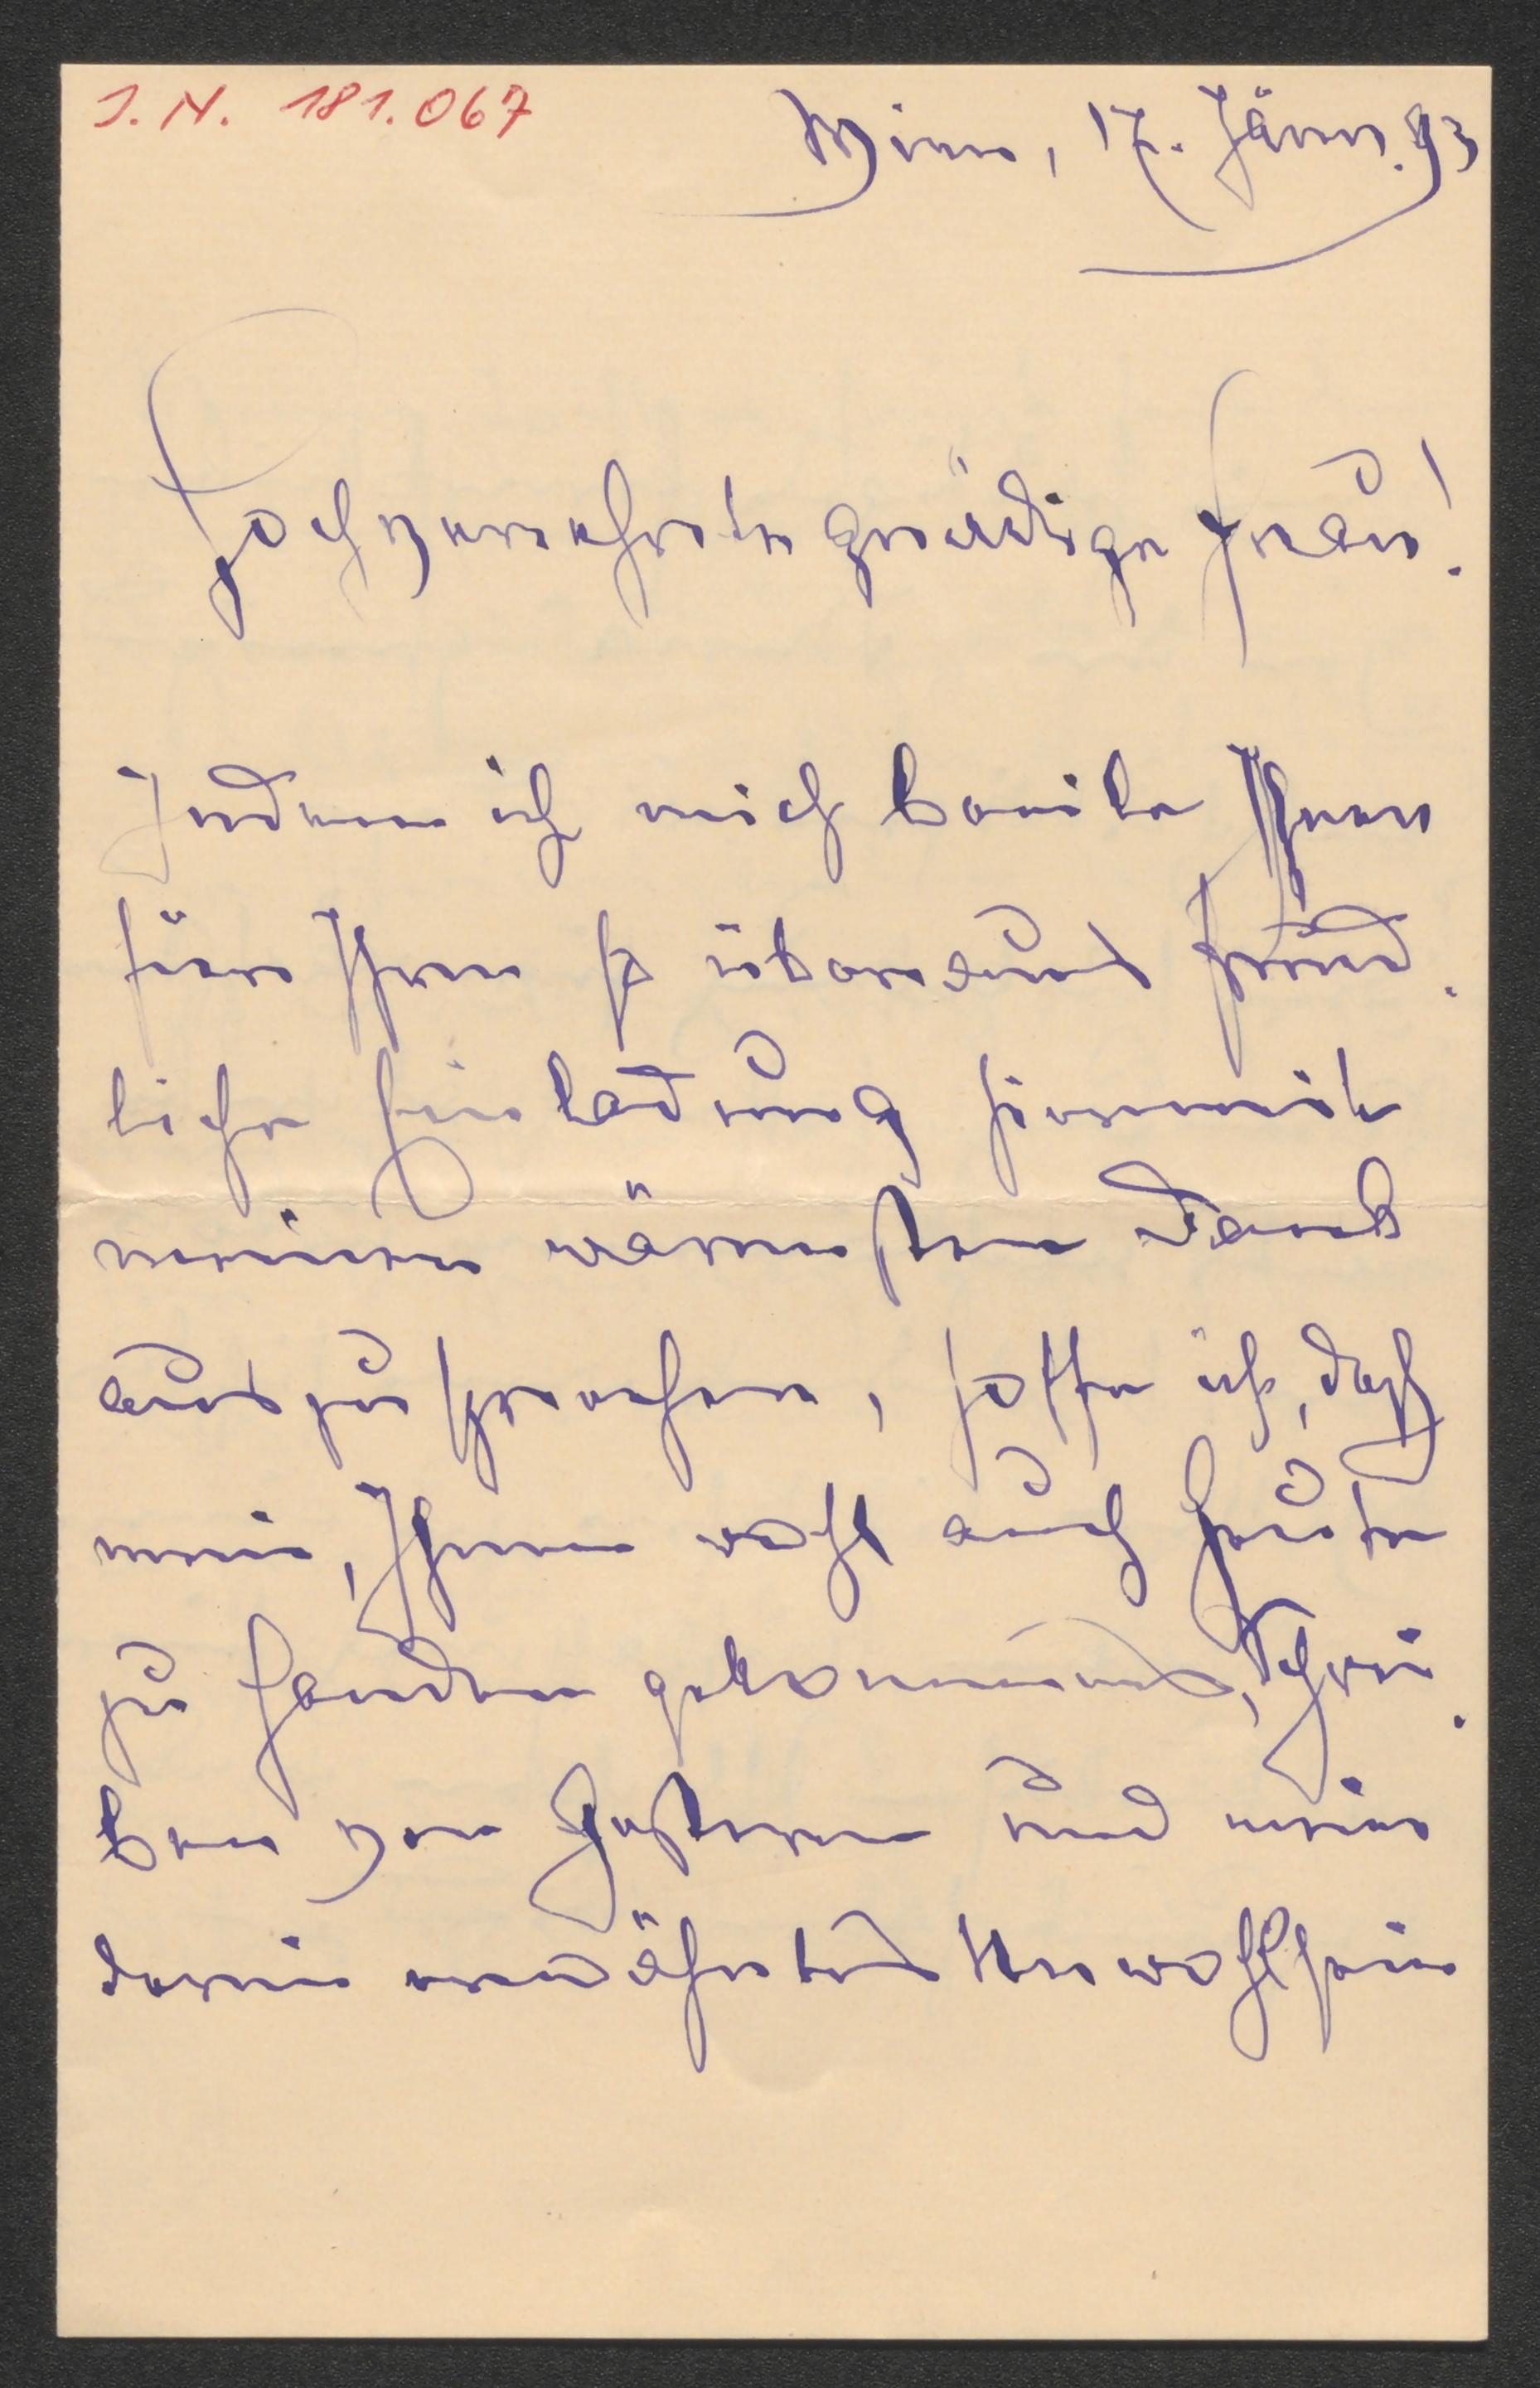 J.N. 181.067
Wien, 17. Jänn. 93
Hochverehrte gnädige Frau!
Indem ich mich beeile Ihnen
für Ihre so überaus freund-
liche Einladung hiermit
meinen wärmsten Dank
auszusprechen, hoffe ich, daß
mein, Ihnen wohl auch heute
zu Handen gekommenes, Schrei-
ben von Gestern und mein
darin erwähntes Unwohlsein